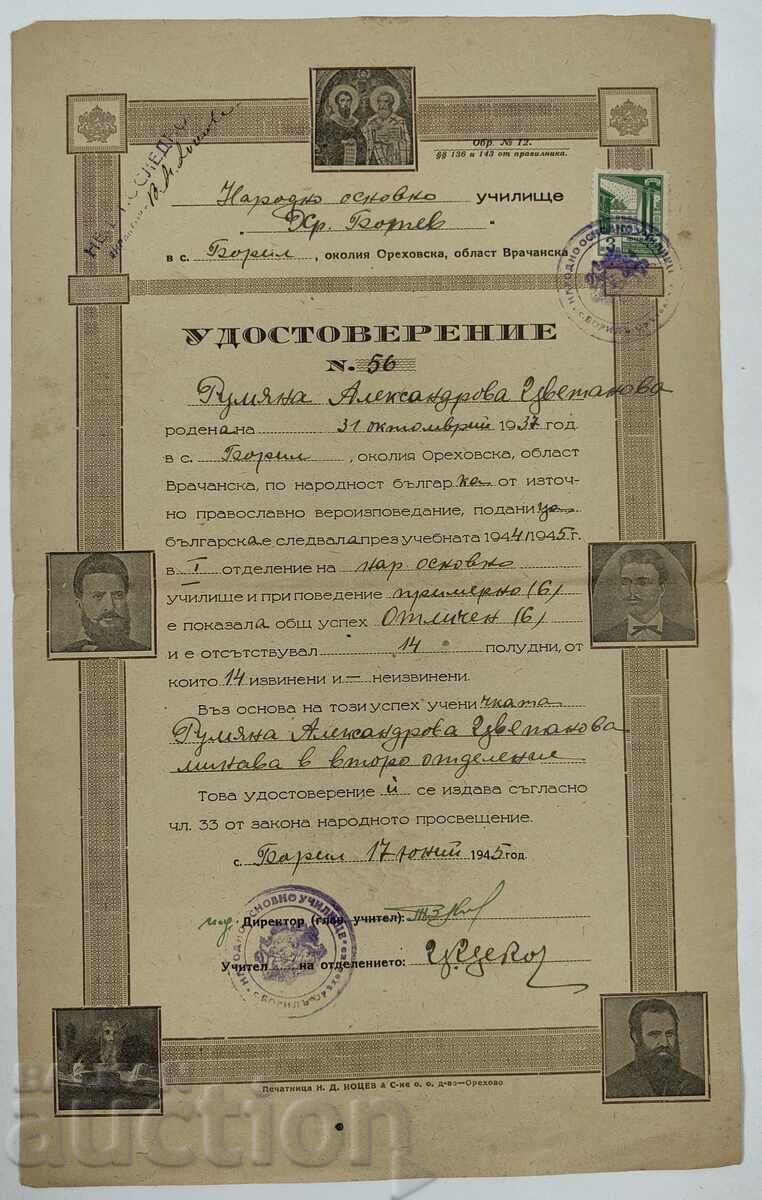 Обр. № 12.
§§ 136 и 143 от правилника.
Народно основно училище
„Хр. Ботев“
в с. Борил, околия Ореховска, област Врачанска
УДОСТОВЕРЕНИЕ
N. 56
Румяна Александрова Цветанова
родена на 31 октомврий 1937 год.
в с. Борил, околия Ореховска, област
Врачанска, по народност българка от източ-
но православно вероизповедание, поданица
българска е следвала през учебната 1944/1945 г.
в I отделение на нар основно
училище и при поведение примерно (6)
е показала общ успех Отличен (6)
и е отсътствувал 14 полудни, от
които 14 извинени и — неизвинени.
Въз основа на този успех ученичката
Румяна Александрова Цветанова
минава в второ отделение
Това удостоверение й се издава съгласно
чл. 33 от закона народното просвещение.
с. Борил 17 юний 1945 год.
Директор (глав. учител):
Учител на отделението:
НАРОДНО ОСНОВНО УЧИЛИЩЕ
с. БОРИЛЪ
Печатница Н. Д. НОЦЕВ & С-ие о. о. д-во—Орехово
auction